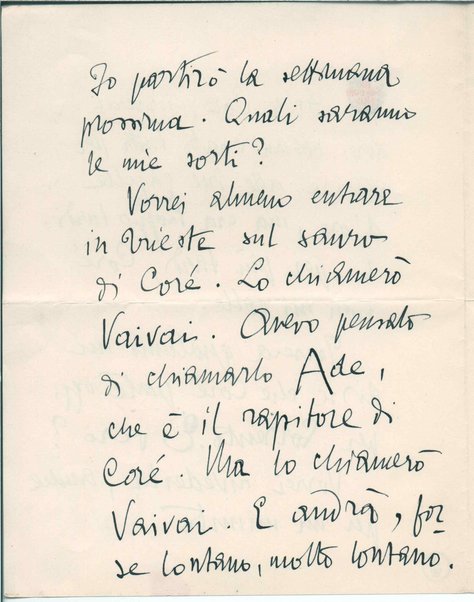 Io partirò la settimana
prossima. Quali saranno
le mie sorti?
Vorrei almeno entrare
in Trieste sul sauro
di Coré. Lo chiamerò
Vaivai. Avevo pensato
di chiamarlo Ade,
che è il rapitore di
Coré. Ma lo chiamerò
Vaivai. E andrà, for-
se lontano, molto lontano.